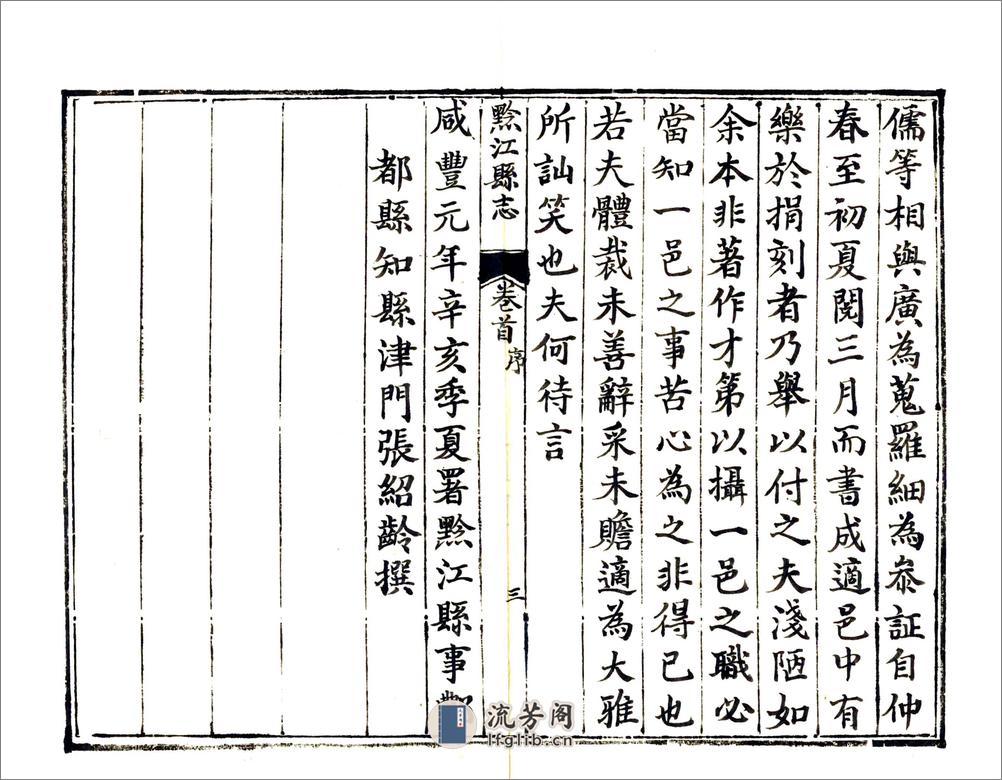 儒等相與廣為蒐羅細為叅証自仲
春至初夏閱三月而書成適邑中有
樂於捐刻者乃舉以付之夫淺陋如
余本非著作才第以攝一邑之職必
當知一邑之事苦心為之非得已也
若夫體裁未善辭采未贍適為大雅
所訕笑也夫何待言
黔江縣志
卷首
序
三
咸豐元年辛亥季夏署黔江縣事酆
都縣知縣津門張紹齡撰
流芳阁
lfglib.cn